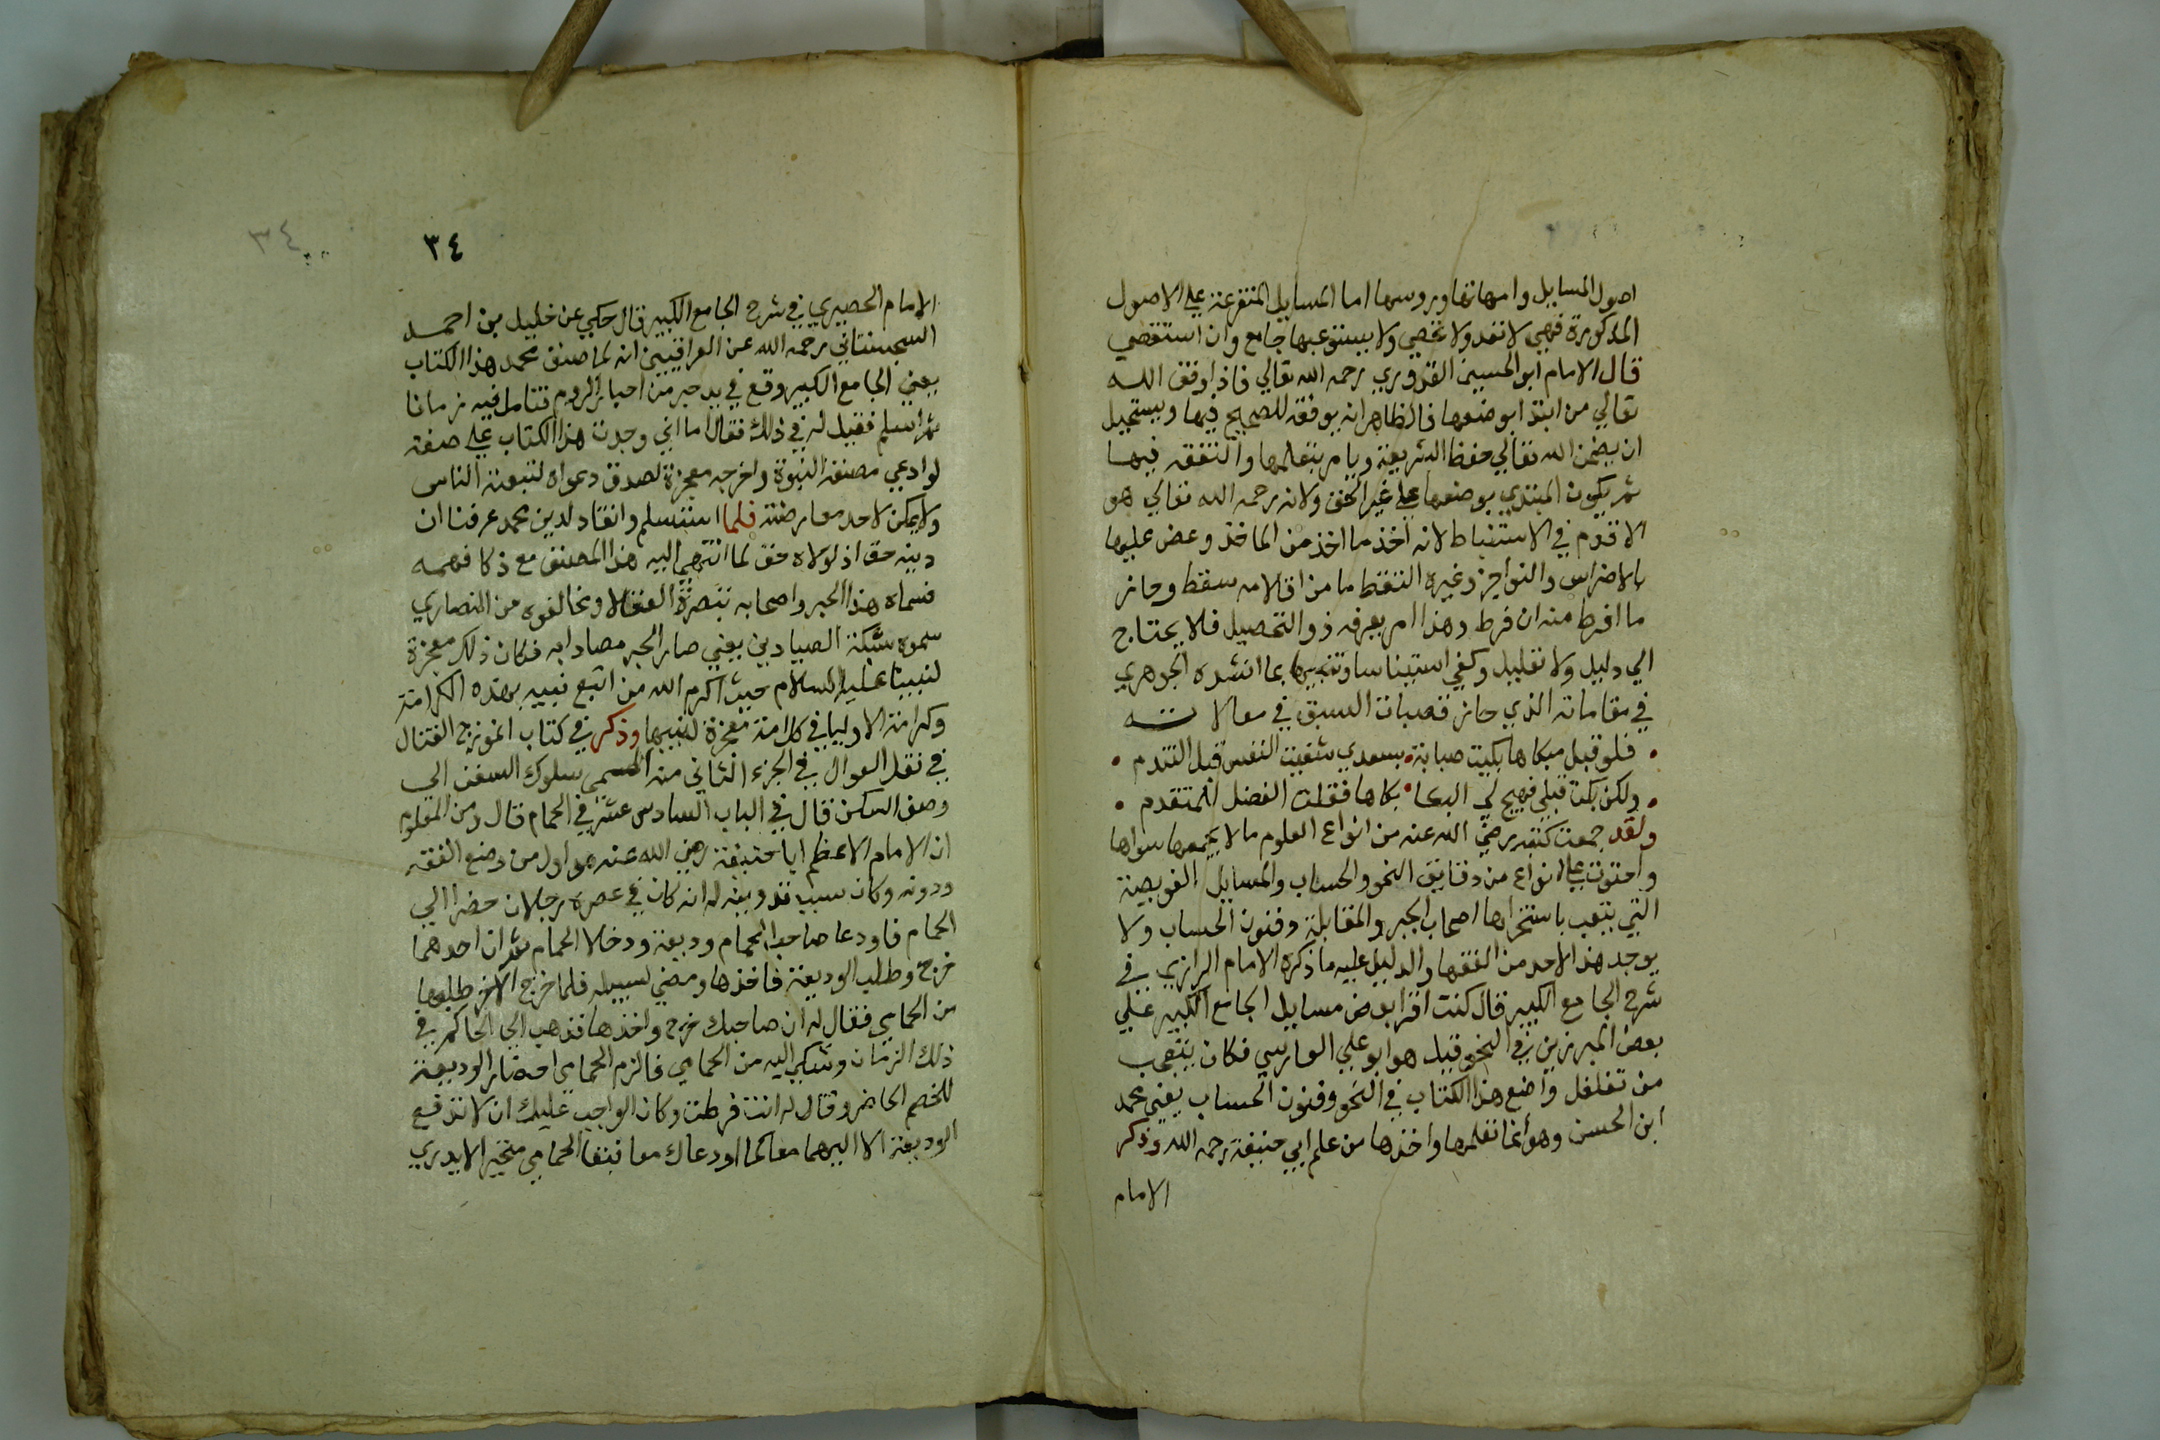 اصول المسايل وامهاتها وروسها اما المسايل المتفرعة على الاصول
المذكورة فهي لا تعد ولا تحصي ولا يستوعبها جامع وان استقصي
قال الامام ابو الحسين القدوري رحمه الله تعالي فاذا وفق الله
تعالي من ابتدا بوضعها فالظاهر انه يوفقه للصحيح فيها ويستحيل
ان يضمن الله تعالي حفظ الشريعة ويامر بتعلمها والتفقه فيها
ثم يكون المبتدي بوضعها علي غير الحق ولانه رحمه الله تعالي هو
الاقدم في الاستنباط لانه اخذ ما اخذ من الماخذ وعض عليها
بالاضراس والنواجز وغيره التقط ما من اقلامه سقط وحاز
ما افرط منه ان فرط وهذا امر يعرفه ذو التحصيل فلا يحتاج
الي دليل ولا تعليل وكفي استيناسا وتنبيها بما انشده الجوهري
في مقاماته الذي حاز قصبات السبق في مقالاته
• فلو قبل مبكاها بكيت صبابة • بسعدي شفيت النفس قبل التندم •
• ولكن بكت قبلي فهيج لي البكا • بكاها فقلت الفضل للمتقدم •
ولقد جمعت كتبه رضي الله عنه من انواع العلوم ما لا يجمعها سواها
واحتوت على انواع من دقايق النحو والحساب والمسايل الغويصة
التي يتعب باستخراجها اصحاب الجبر والمقابلة وفنون الحساب ولا
يوجد هذا لاحد من الفقها والدليل عليه ما ذكره الامام الرازي في
شرح الجامع الكبير قال كنت اقرا بعض مسايل الجامع الكبير علي
بعض المبرزين في النحو قيل هو ابو علي الفارسي فكان يتعجب
من تغلغل واضع هذا الكتاب في النحو وفنون الحساب يعني محمد
ابن الحسن وهو انما تعلمها واخذها من علم ابي حنيفة رحمه الله وذكر
الامام
٣٤
٣٤
الامام الحصيري في شرح الجامع الكبير قال حكي عن خليل بن احمد
السجستاني رحمه الله عن العراقيين انه لما صنف محمد هذا الكتاب
يعني الجامع الكبير وقع في يد حبر من احبار الروم تتامل فيه زمانا
ثم اسلم فقيل له في ذلك فقال اما اني وجدت هذا الكتاب علي صفة
لو ادعي مصنفه النبوة واخرجه معجزة لصدق دعواه لتبعته الناس
ولا يمكن لاحد معارضته فلما استسلم وانقاد لدين محمد عرفنا ان
دينه حق اذ لولاه حق لما انتهي اليه هذا المصنف مع ذكا فهمه
فسماه هذا الحبر واصحابه تبصرة العقلا ومخالفوه من النصاري
سموه شبكة الصيادين يعني صار الحبر مصادا به فكان ذلك معجزة
لنبينا عليه السلام حيث اكرم الله من اتبع نبيه بهذه الكرامة
وكرامة الاوليا في كل امة معجزة لنبيها وذكر في كتاب انموزج القتال
في نقل العوال في الجزء الثاني من المسمي سلوك السفن الي
وصف السكن قال في الباب السادس عشر في الحمام قال ومن المعلوم
ان الامام الاعظم ابا حنيفة رضي الله عنه هو اول من وضع الفقه
ودونه وكان سبب تدوينه له انه كان في عصره رجلان حضرا الي
الحمام فاودعا صاحب الحمام وديعة ودخلا الحمام ثم ان احدهما
خرج وطلب الوديعة فاخذها ومضي لسبيله فلما خرج الاخر طلبها
من الحمامي فقال له ان صاحبك خرج واخذها فذهب الي الحاكم في
ذلك الزمان وشكي اليه من الحمامي فالزم الحمامي احضار الوديعة
للخصم الحاضر وقال له انت فرطت وكان الواجب عليك ان لا تدفع
الوديعة الا اليهما معا كما اودعاك معا فبقا الحمامي متحيرا لا يدري